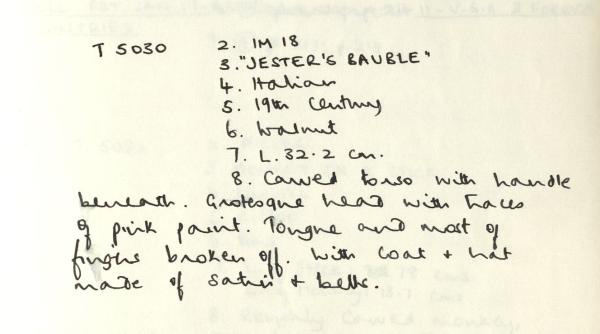 T 5030 2. IM 18
3. "JESTER'S BAUBLE"
4. Italian
5. 19th Century
6. Walnut
7. L. 32.2 cm.
8. Carved torso with handle
beneath. Grotesque head with traces
of pink paint. Tongue and most of
fingers broken off. With coat + hat
made of satin + bells.